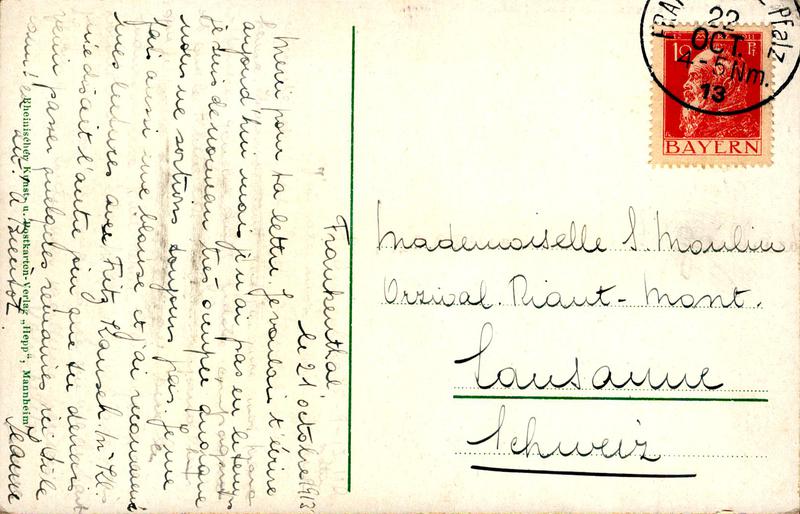 Frankenthal,
le 21 octobre 1913
Merci pour ta lettre. Je voulais t'écrire
aujourd'hui mais je n'ai pas eu le temps
je suis de nouveau très occupée quoique
nous ne sortions toujours pas. Je me
fais aussi une blouse et j'ai recommencé
mes lectures avec Fritz
me disait l'autre jour que tu devrais
venir passer quelques semaines ici
Bientôt.
Jeanne
Rheinischer Kunst- u. Postkarten-Verlag „Hepp", Mannheim
FRAN Pfalz
22
OCT.
4-5 Nm.
13
10 Pf
BAYERN
Mademoiselle S. Moulin
Orzival. Riant-Mont.
Lausanne
Schweiz